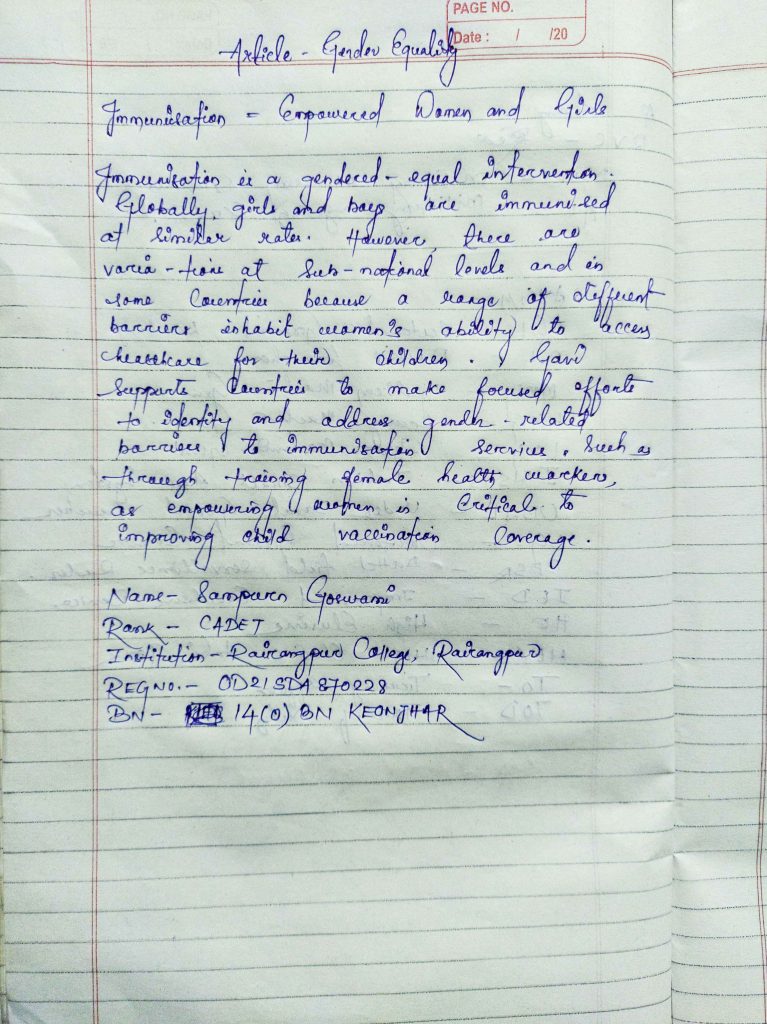 PAGE NO.
Date : / /20
Article - Gender Equality
Immunisation - Empowered Women and Girls
Immunisation is a gendered - equal intervention.
Globally, girls and boys are immunised
at similar rates. However, there are
varia - tions at sub - national levels and in
some Countries because a range of different
barriers inhabit women's ability to access
healthcare for their children. Gavi
supports Countries to make focused efforts
to identity and address gender - related
barriers to immunisation services, such as
through training female health workers,
as empowering women is critical to
improving child vaccination Coverage.
Name - Sampurn Goswami
Rank - CADET
Institution - Rairangpur College, Rairangpur
REGNO. - OD21SDA870228
BN - 14(O) BN KEONJHAR